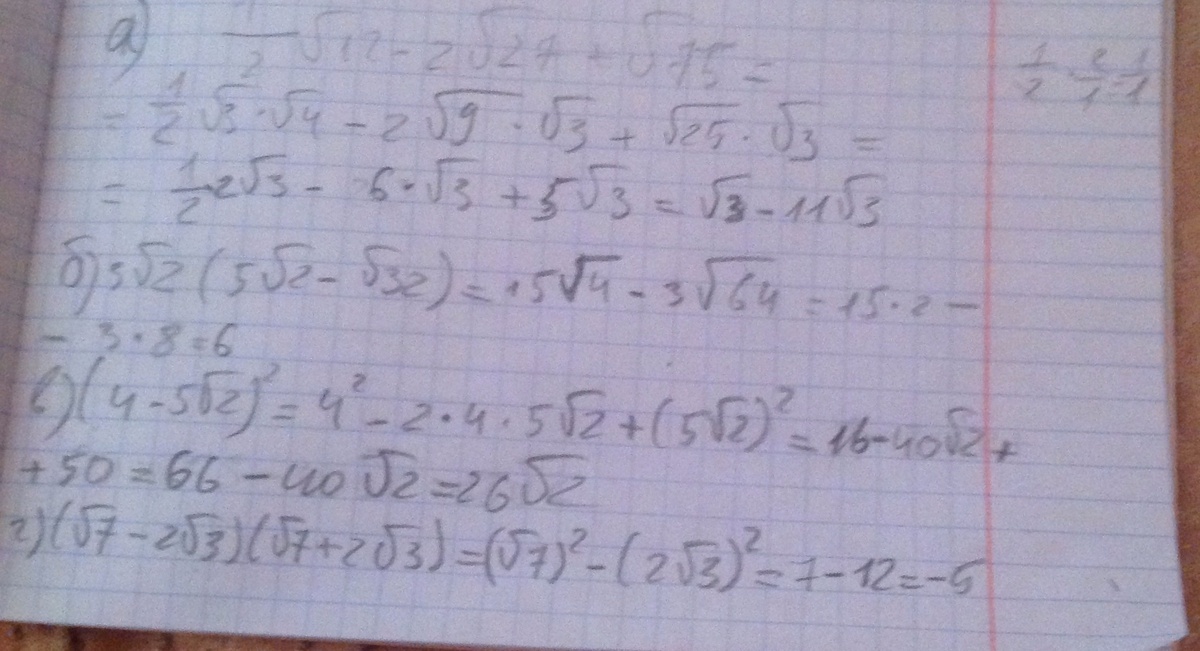 а) 1/2 √12 - 2√27 + √75 =
1/2 · 2/1 = 1/1
= 1/2 √3 · √4 - 2√9 · √3 + √25 · √3 =
= 1/2 · 2√3 - 6 · √3 + 5√3 = √3 - 11√3
б) 3√2 (5√2 - √32) = 15√4 - 3√64 = 15 · 2 -
- 3 · 8 = 6
в) (4 - 5√2)² = 4² - 2 · 4 · 5√2 + (5√2)² = 16 - 40√2 +
+ 50 = 66 - 40√2 = 26√2
г) (√7 - 2√3)(√7 + 2√3) = (√7)² - (2√3)² = 7 - 12 = -5